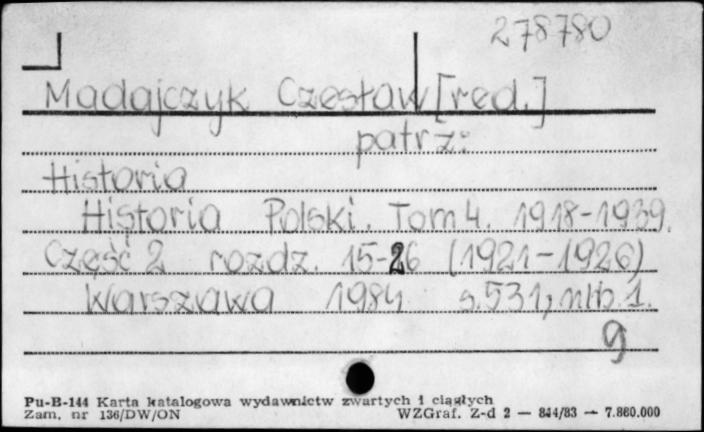 278780
Madajczyk Czesław [red.]
patrz:
Historia
Historia Polski. Tom 4. 1918-1939.
Część 2 rozdz. 15-26 (1921-1926)
Warszawa 1984 s.531, nlb.1.
g
Pu-B-144 Karta katalogowa wydawnictw zwartych i ciągłych
Zam. nr 136/DW/ON WZGraf. Z-d 2 — 844/83 — 7.860.000